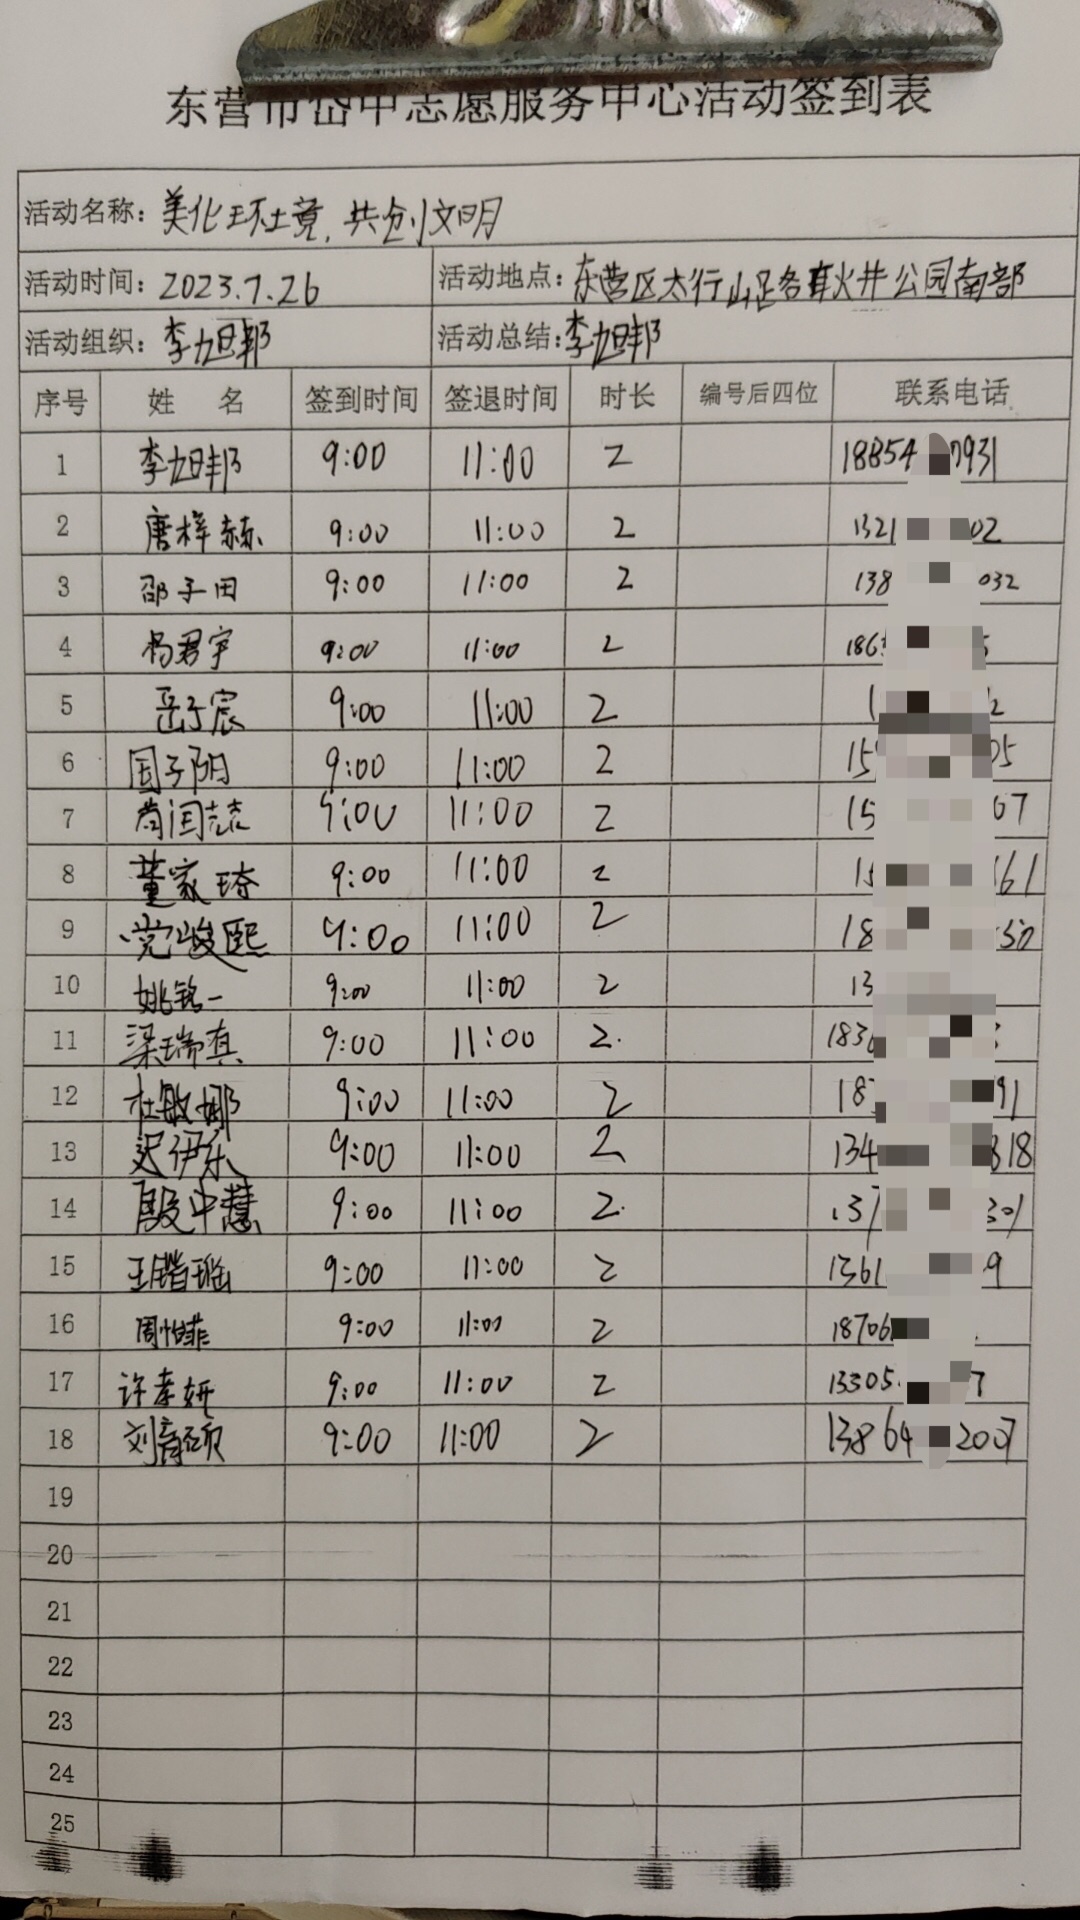 东营市岱中志愿服务中心活动签到表
活动名称：美化环境，共创文明
活动时间：2023.7.26 活动地点：东营区太行山路各耳火井公园南部
活动组织：李旭邦 活动总结：李旭邦
序号 姓 名 签到时间 签退时间 时长 编号后四位 联系电话
1 李旭邦 9:00 11:00 2 18854 7931
2 唐梓赫 9:00 11:00 2 1321 02
3 邵子田 9:00 11:00 2 138 032
4 杨君宇 9:00 11:00 2 186
5 岳子宸 9:00 11:00 2 1 2
6 国子阳 9:00 11:00 2 15 05
7 9:00 11:00 2 15 07
8 董家琦 9:00 11:00 2 15 61
9 党峻熙 9:00 11:00 2 18 50
10 姚铭一 9:00 11:00 2 13
11 梁瑞真 9:00 11:00 2. 183
12 杜敏娜 9:00 11:00 2 18 91
13 迟伊乐 9:00 11:00 2 134 818
14 殷中慧 9:00 11:00 2. 137 301
15 王锴瑶 9:00 11:00 2 1361 9
16 周怡菲 9:00 11:00 2 18706
17 许孝妍 9:00 11:00 2 13305 7
18 刘育硕 9:00 11:00 2 13864 2007
19
20
21
22
23
24
25